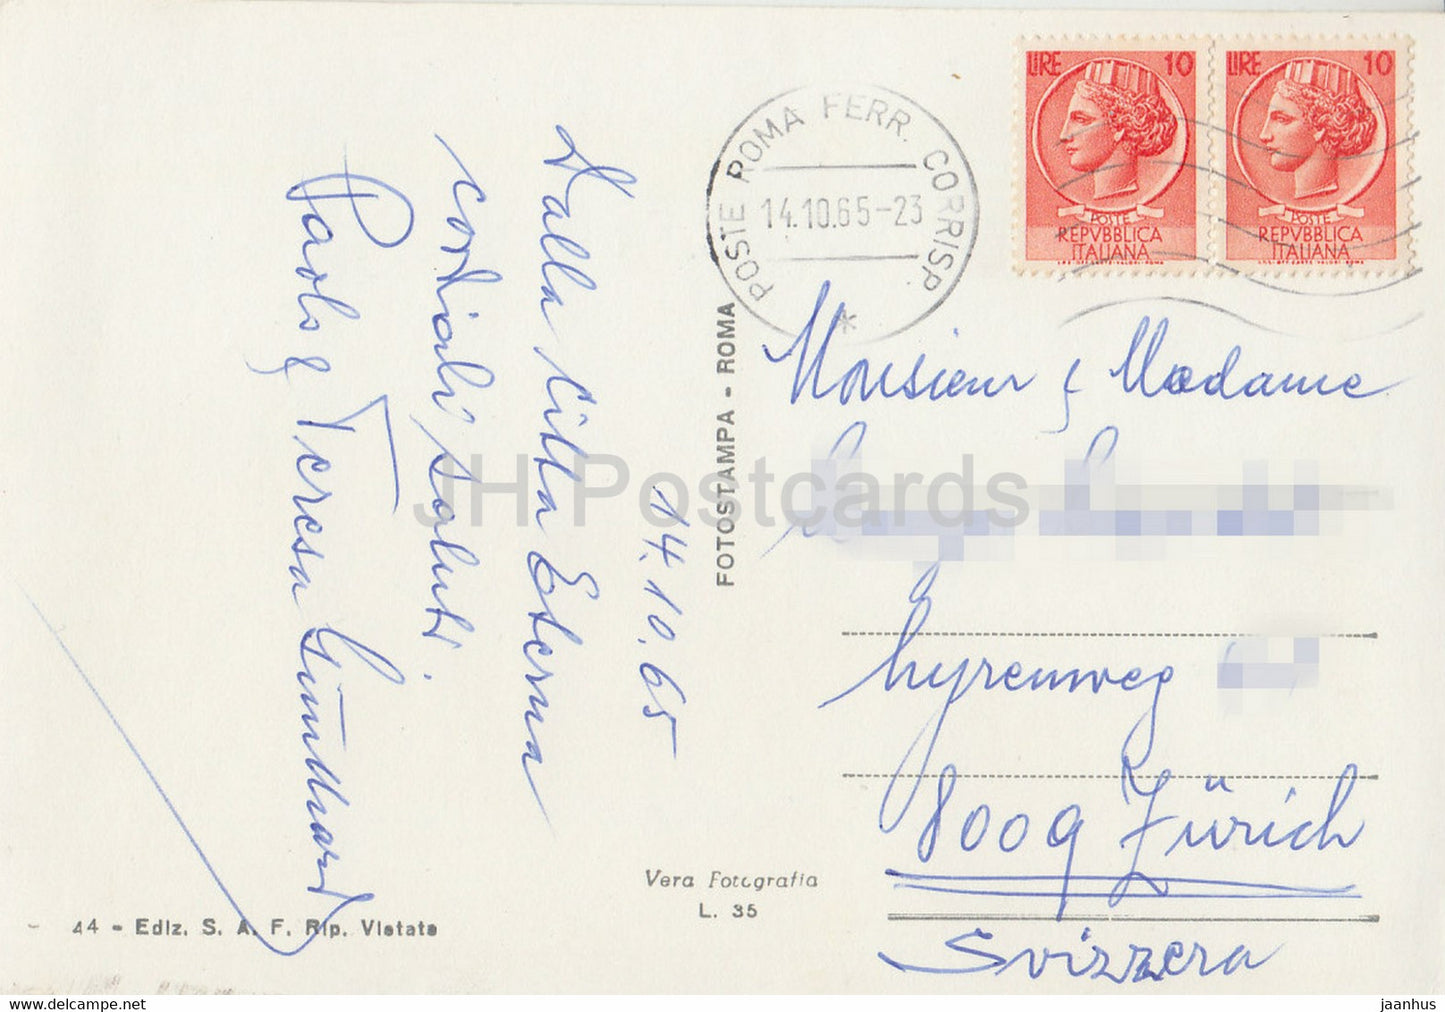 14.10.65
Dalla Città Eterna
cordiali saluti.
Paolo & Teresa
44 - Ediz. S. A. F. Rip. Vietata
FOTOSTAMPA - ROMA
Vera Fotografia
L. 35
POSTE ROMA FERR. CORRISP.
14.10.65-23
LIRE 10
POSTE
REPVBBLICA
ITALIANA
LIRE 10
POSTE
REPVBBLICA
ITALIANA
Monsieur & Madame
8009 Zürich
Svizzera
JH Postcards
jaanhus